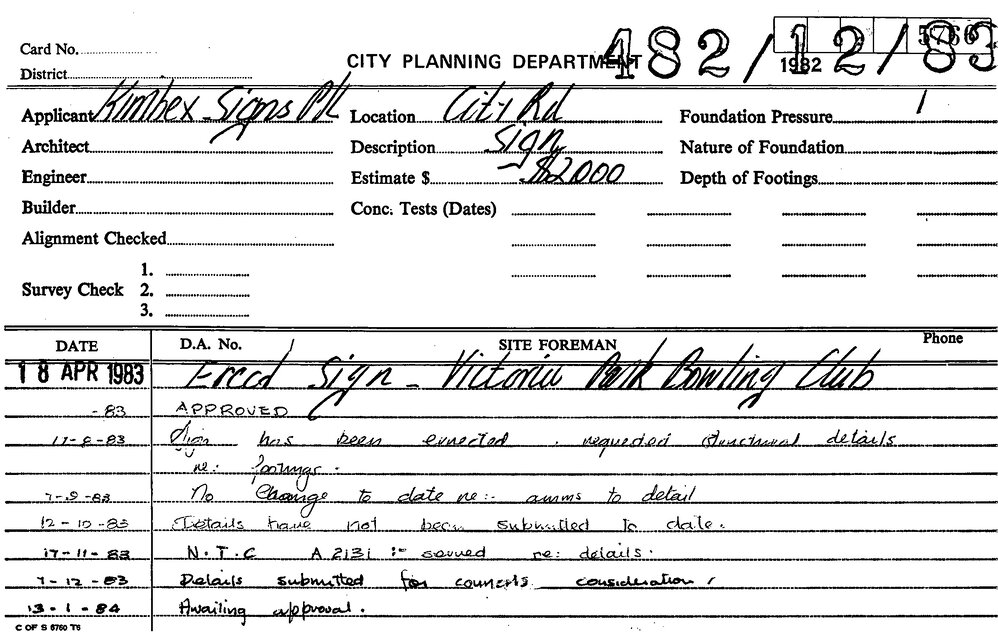 Card No.
District
CITY PLANNING DEPARTMENT
482/12/83
1982
Applicant Kimbex Signs P/L Location City Rd Foundation Pressure
Architect Description Sign Nature of Foundation
Engineer Estimate $ $2000 Depth of Footings
Builder Conc. Tests (Dates)
Alignment Checked
1.
Survey Check 2.
3.
DATE D.A. No. SITE FOREMAN Phone
18 APR 1983 Erect Sign - Victoria Park Bowling Club
-83 APPROVED
17-8-83 Sign has been erected. requested structural details
re: footings.
7-9-83 No Change to date re:- to detail
12-10-83 Details have not been submitted to date.
17-11-83 N.T.C A2131 :- served re: details.
7-12-83 Details submitted for councils consideration
13-1-84 Awaiting approval.
C OF S 6760 T6